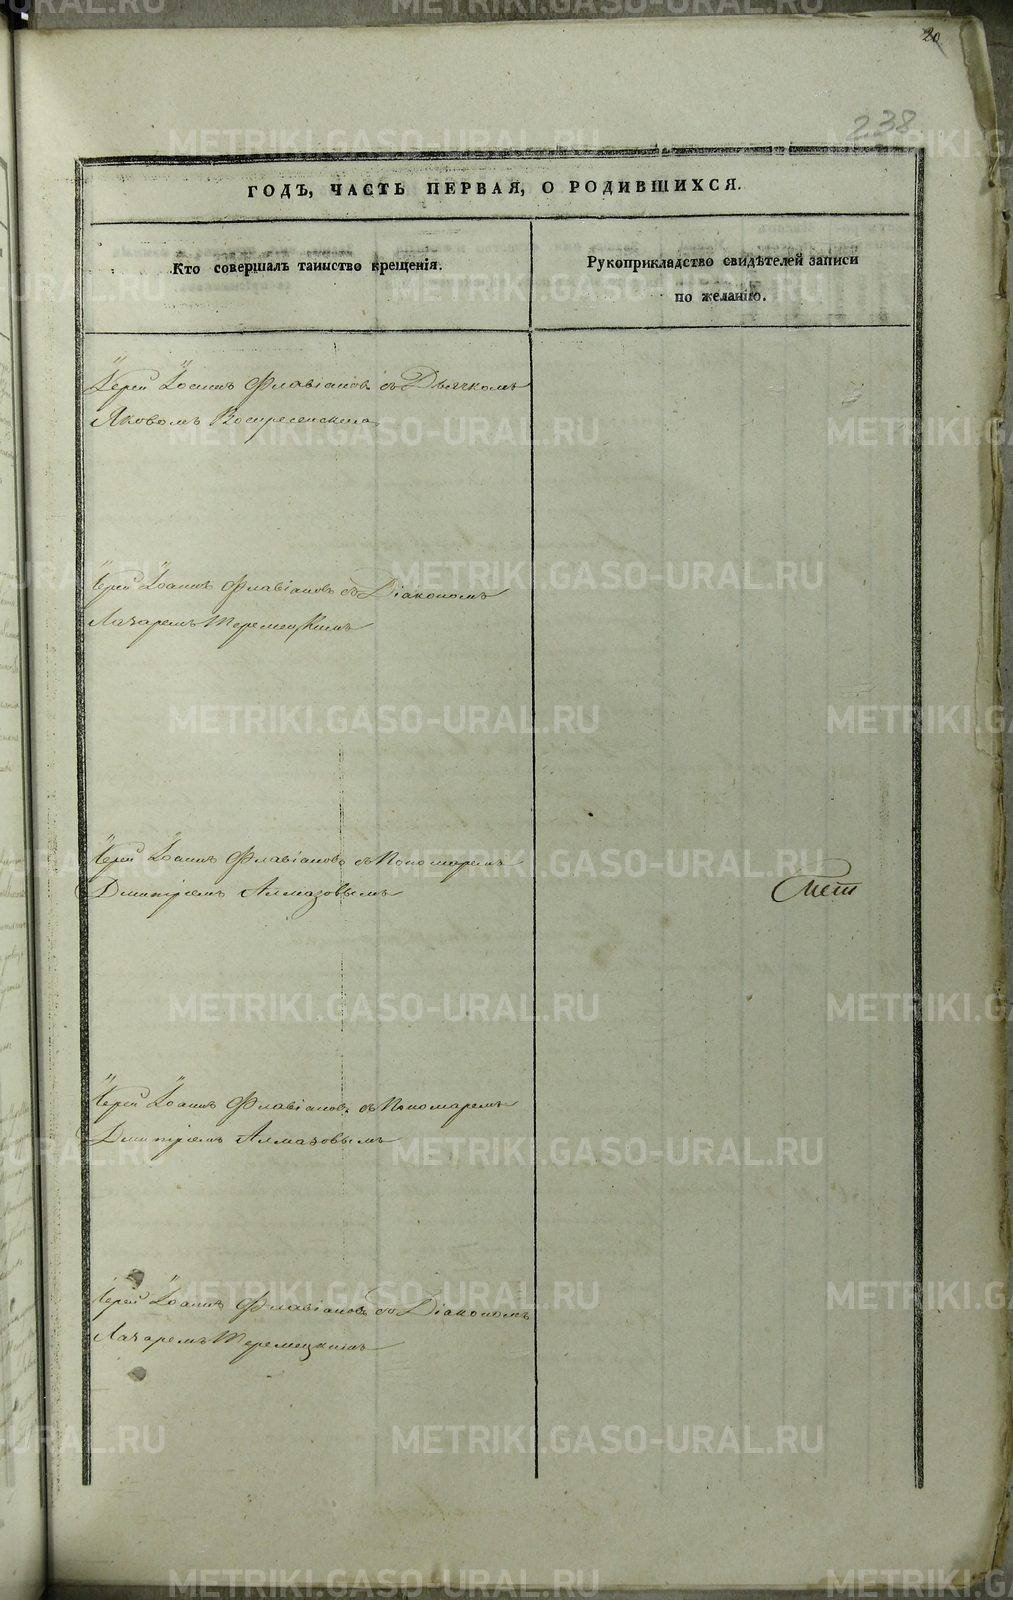 20
238
ГОДЪ, ЧАСТЬ ПЕРВАЯ, О РОДИВШИХСЯ.
Кто совершалъ таинство крещенія.
Рукоприкладство свидѣтелей записи
по желанію.
Іерей Іоаннъ Флавіановъ съ Дьячкомъ
Яковомъ Воскресенскимъ
Іерей Іоаннъ Флавіановъ съ Діакономъ
Лазаремъ Теремецкимъ
Іерей Іоаннъ Флавіановъ съ Пономаремъ
Дмитріемъ Алмазовымъ
Іерей Іоаннъ Флавіановъ съ Пономаремъ
Дмитріемъ Алмазовымъ
Іерей Іоаннъ Флавіановъ съ Діакономъ
Лазаремъ Теремецкимъ
METRIKI.GASO-URAL.RU